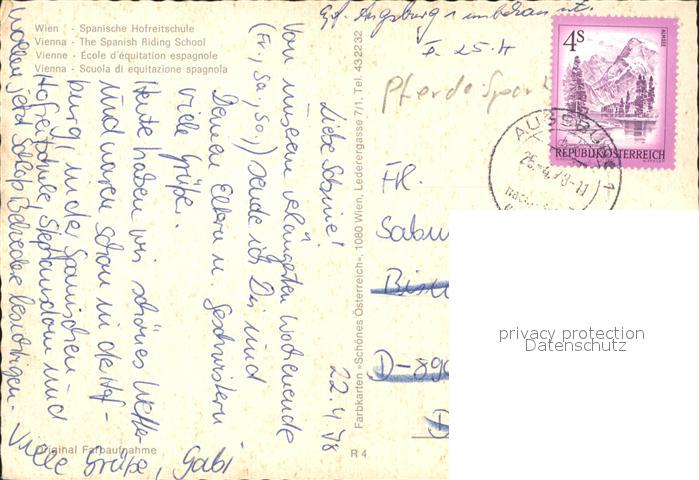 Wien - Spanische Hofreitschule
Vienna - The Spanish Riding School
Vienne - École d'équitation espagnole
Vienna - Scuola di equitazione spagnola
22.4.78
Liebe Sabine!
Von unserem verlängerten Wochenende
(Fr., Sa, So,) sende ich Dir und
Deinen Eltern u. Geschwistern
viele Grüße.
Heute haben wir schönes Wetter
und waren schon in der Hof-
burg, in der Spanischen
Hofreitschule, Stephansdom und
wollen jetzt Schloß Belvedere besichtigen.
Viele Grüße, Gabi
Original Farbaufnahme
R 4
Farbkarten »Schönes Österreich«, 1080 Wien, Lederergasse 7/1, Tel. 43 22 32
Augsburg 1
25.4
Pferde Sport
4S
ALMSEE
REPUBLIK ÖSTERREICH
AUGSBURG 1
25.-4.78-11
Frl.
D-
privacy protection
Datenschutz